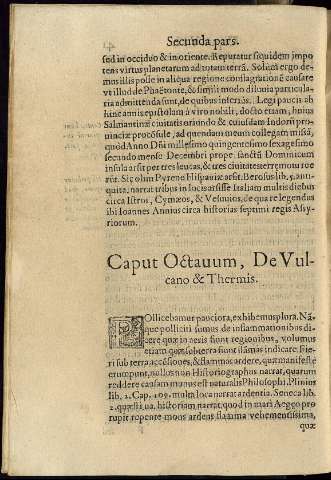 Secunda pars.
sed in occiduo & in oriente. Reputatur siquidem impo
tens virtus planetarum ad totam terrã. Solùm ergo de-
mus illis posse in aliqua regione conflagrationē causare
vt illud de Phaëtonte, & simili modo diluuia particula-
ria admittenda sunt, de quibus inferiùs. Legi paucis ab
hinc annis epistolam à viro nobili, docto etiam, huius
Salmantinæ ciuitatis oriundo & eiusdam Indorū pro-
uinciæ præsule, ad quendam meum collegam missã,
quòd Anno Dñi millesimo quingentesimo sexagesimo
secundo mense Decembri prope sancti Dominicum
insula arsit per tres leucas, & tres ciuitates terremotu rue
re. Sic olim Pyrene Hispaniæ arsit. Berosus lib. 5. anti-
quita. narrat tribus in locis arsisse Italiam multis diebus
circa Istros, Cymæos, & Vesuuios, de qua re legendus
ibi Ioannes Annius circa historias septimi regis Assy-
riorum.
Caput Octauum, De Vul-
cano & Thermis.
POllicebamur pauciora, exhibemus plora. Nã-
que polliciti sumus de inflammationibus di-
cere quæ in nesis sunt regionibus, volumus
etiam quæ subterra sunt flãmas indicare. Fie-
ri sub terra accēsiones, & flammas ardere, quæ manifestè
erumpunt, nos non Historiographus narrat, quarum
reddere causam munus est naturalis Philosophi. Plinius
lib. 2. Cap. 109. multa loca narrat ardentia. Seneca lib.
2. quæsti. na. historiam narrat, quod in mari Aegeo pro
rupit repente mons ardens flamma vehementissima,
quæ